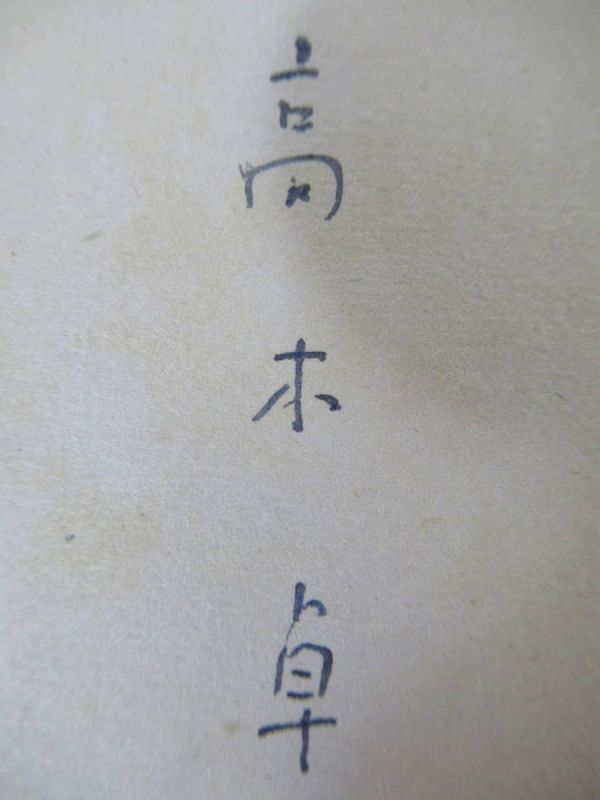 高木卓